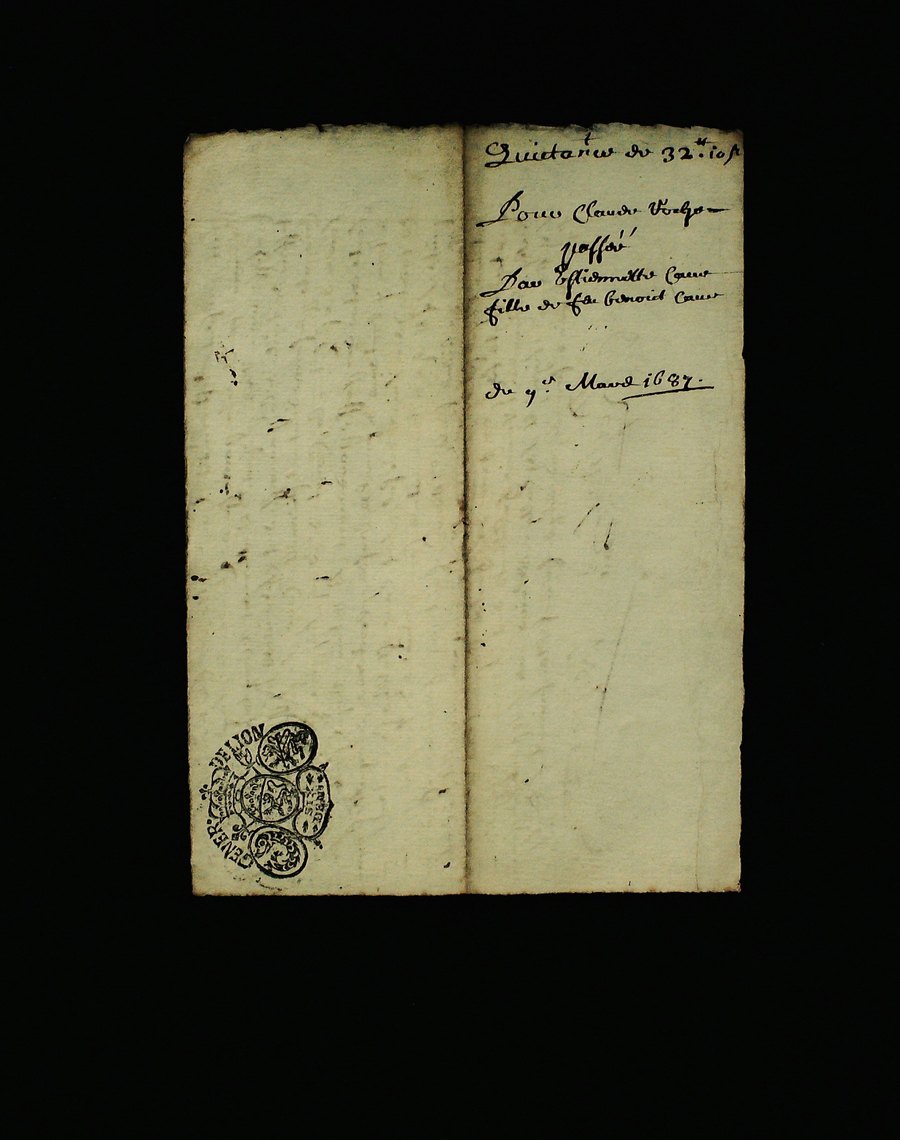 Quictance de 32 ℔. 10 s
Pour Claude Roche
passée
Par Estiennette Caue
fille de feu benoict Caue
du 9e. Mars 1687.
GENER. DE LION
SIX DEN.